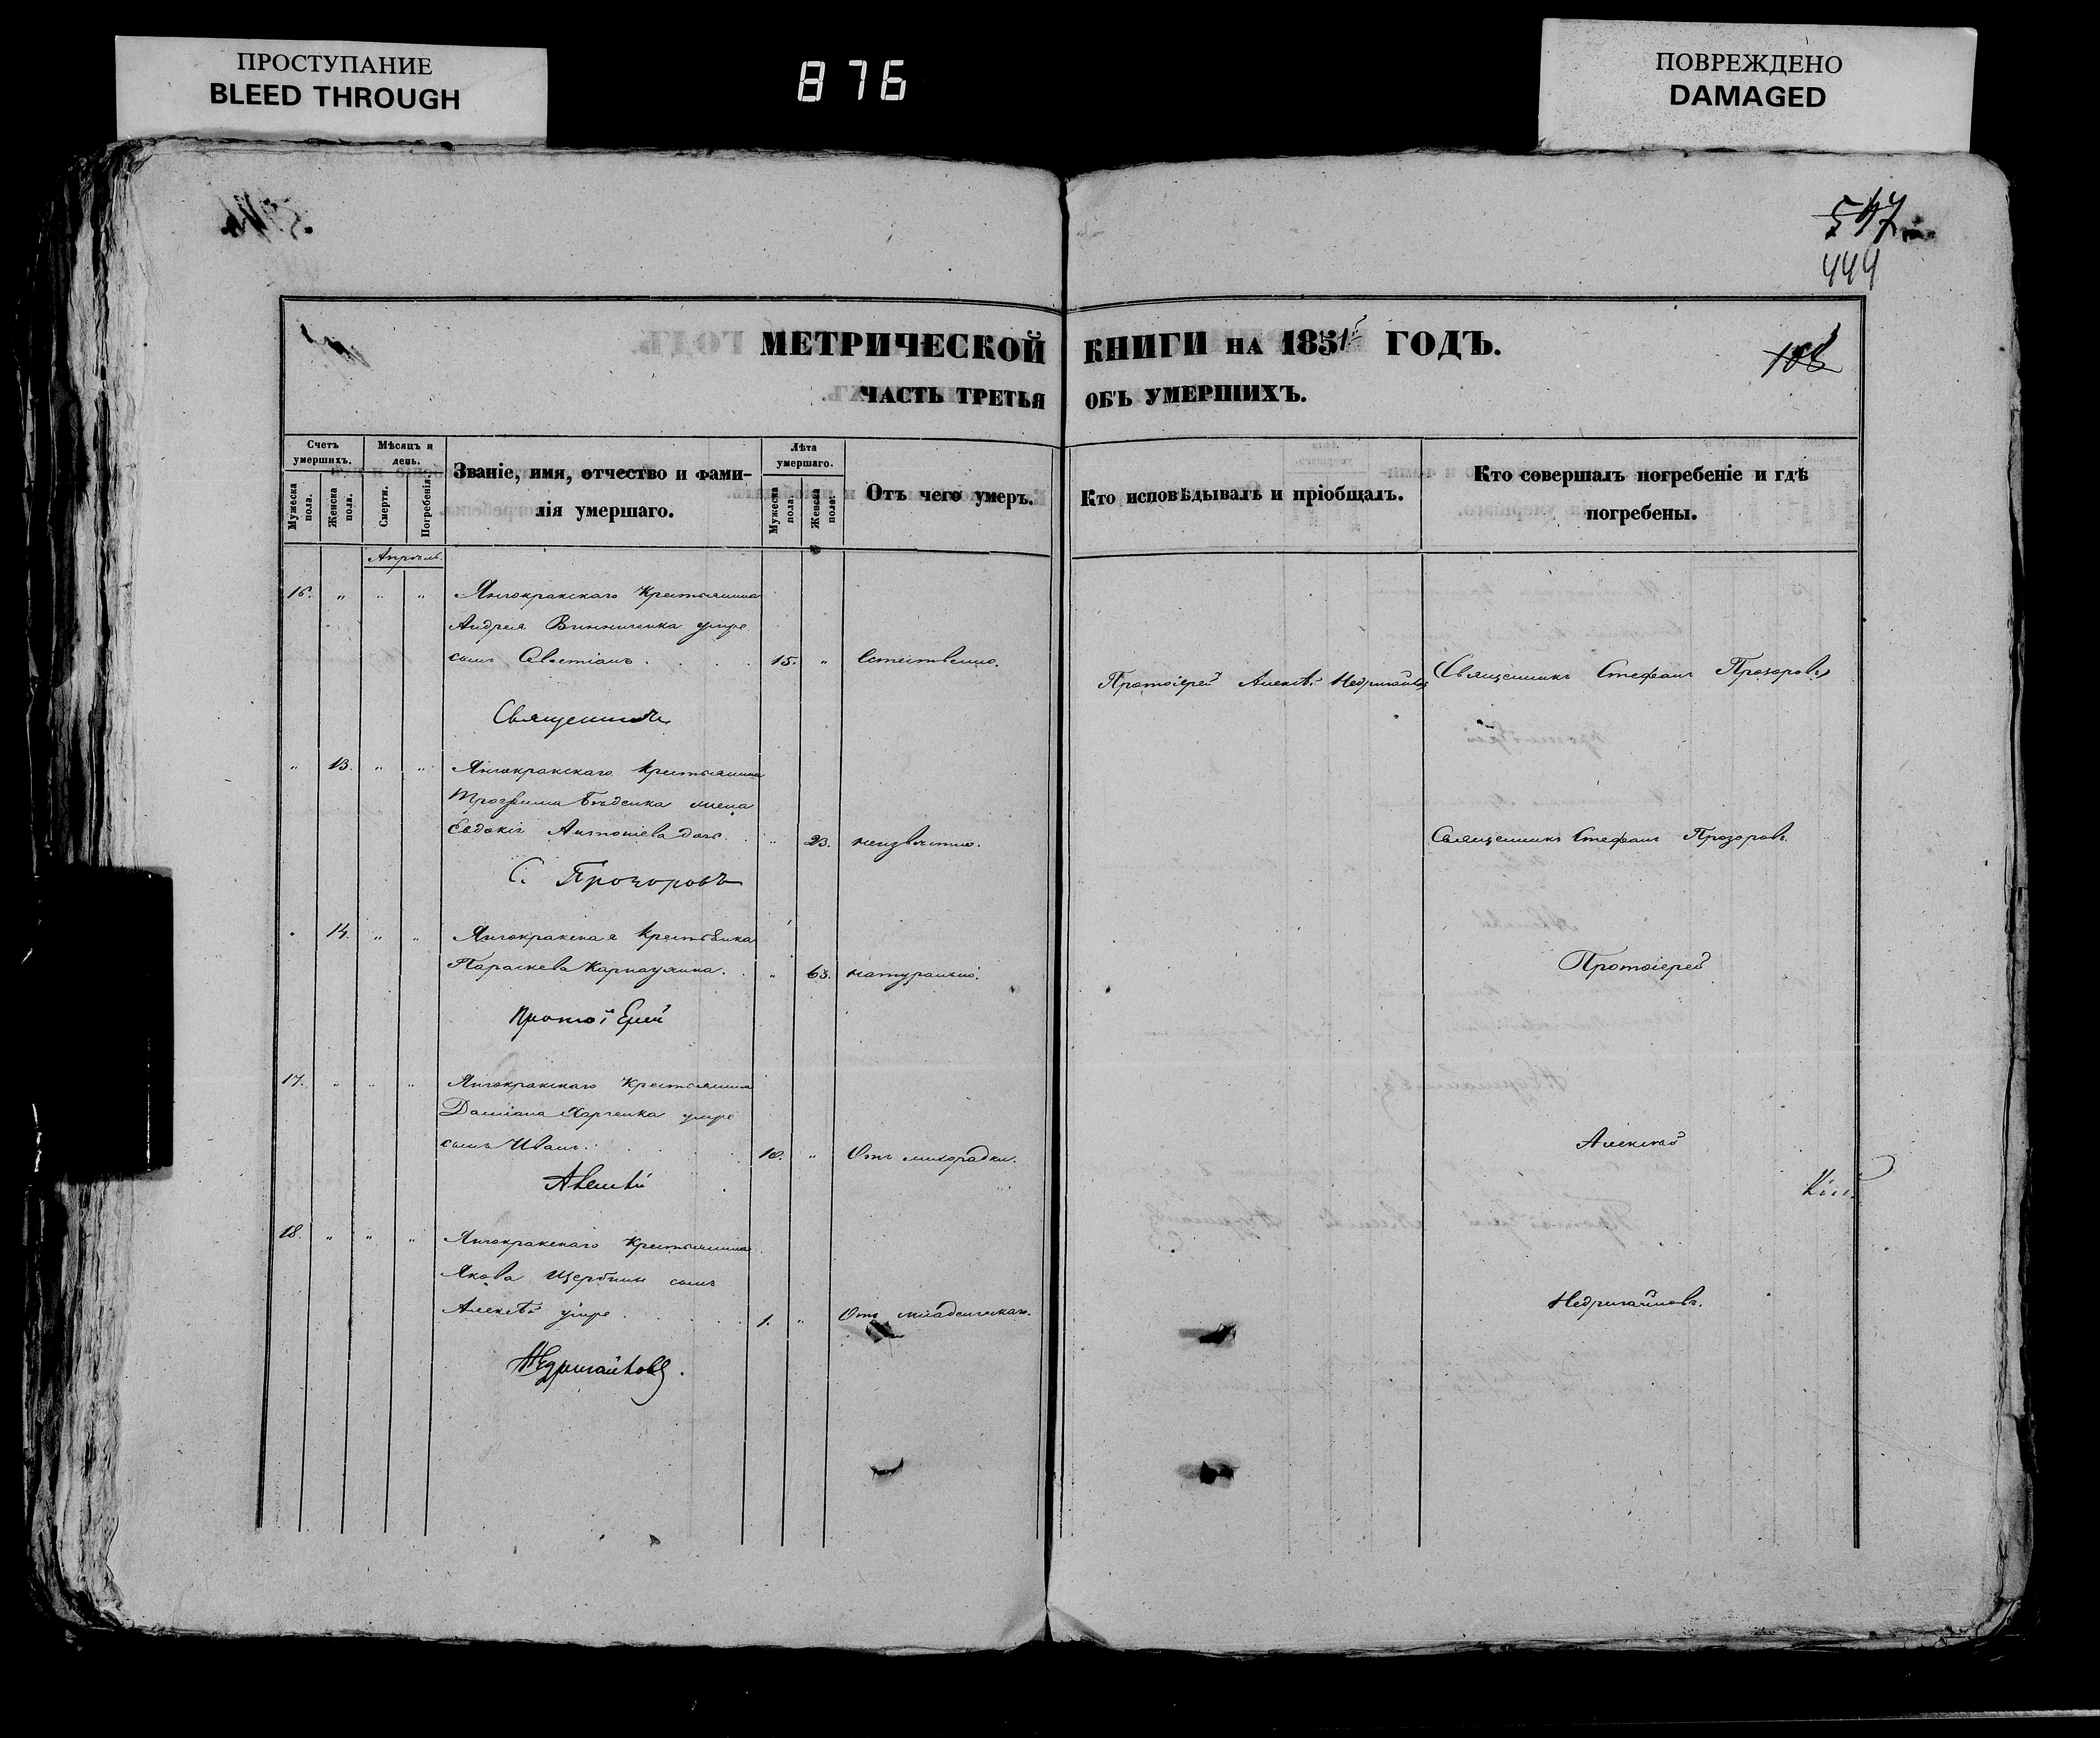 ПРОСТУПАНИЕ
BLEED THROUGH
876
ПОВРЕЖДЕНО
DAMAGED
547
444
МЕТРИЧЕСКОЙ КНИГИ НА 1851 ГОДЪ.
108
ЧАСТЬ ТРЕТЬЯ ОБЪ УМЕРШИХЪ.
Счетъ умершихъ.
Мѣсяцъ и день.
Званіе, имя, отчество и фами-
лія умершаго.
Лѣта умершаго.
Отъ чего умеръ.
Кто исповѣдывалъ и пріобщалъ.
Кто совершалъ погребеніе и гдѣ
погребены.
Мужеска пола.
Женска пола.
Смерти.
Погребенія.
Мужеска пола.
Женска пола.
Апрѣль
16. " " " Янчокракскаго Крестьянина
Андрея Винниченка умре
сынъ 15. " Естественно. Протоіерей Алексѣй Недригайловъ Священникъ Стефанъ Прозоровъ
Священникъ
" 13. " " Янчокракскаго Крестьянина
Трофима жена
Евдокія Антоніева дочь. " 23. неизвѣстно. Священникъ Стефанъ Прозоровъ.
С. Прозоровъ
14. " " Янчокракская Крестьянка
Параскева " 63. натурально. Протоіерей
ПротоіЕрей
17. " " " Янчокракскаго Крестьянина
Даміана Харченка умре
сынъ Иванъ. 10. " Отъ лихорадки. Алексѣй
Алексѣй
18. " " " Янчокракскаго Крестьянина
Якова Щербины сынъ
Алексѣй умре 1. " Отъ младенческаго. Недригайловъ.
Недригайловъ.